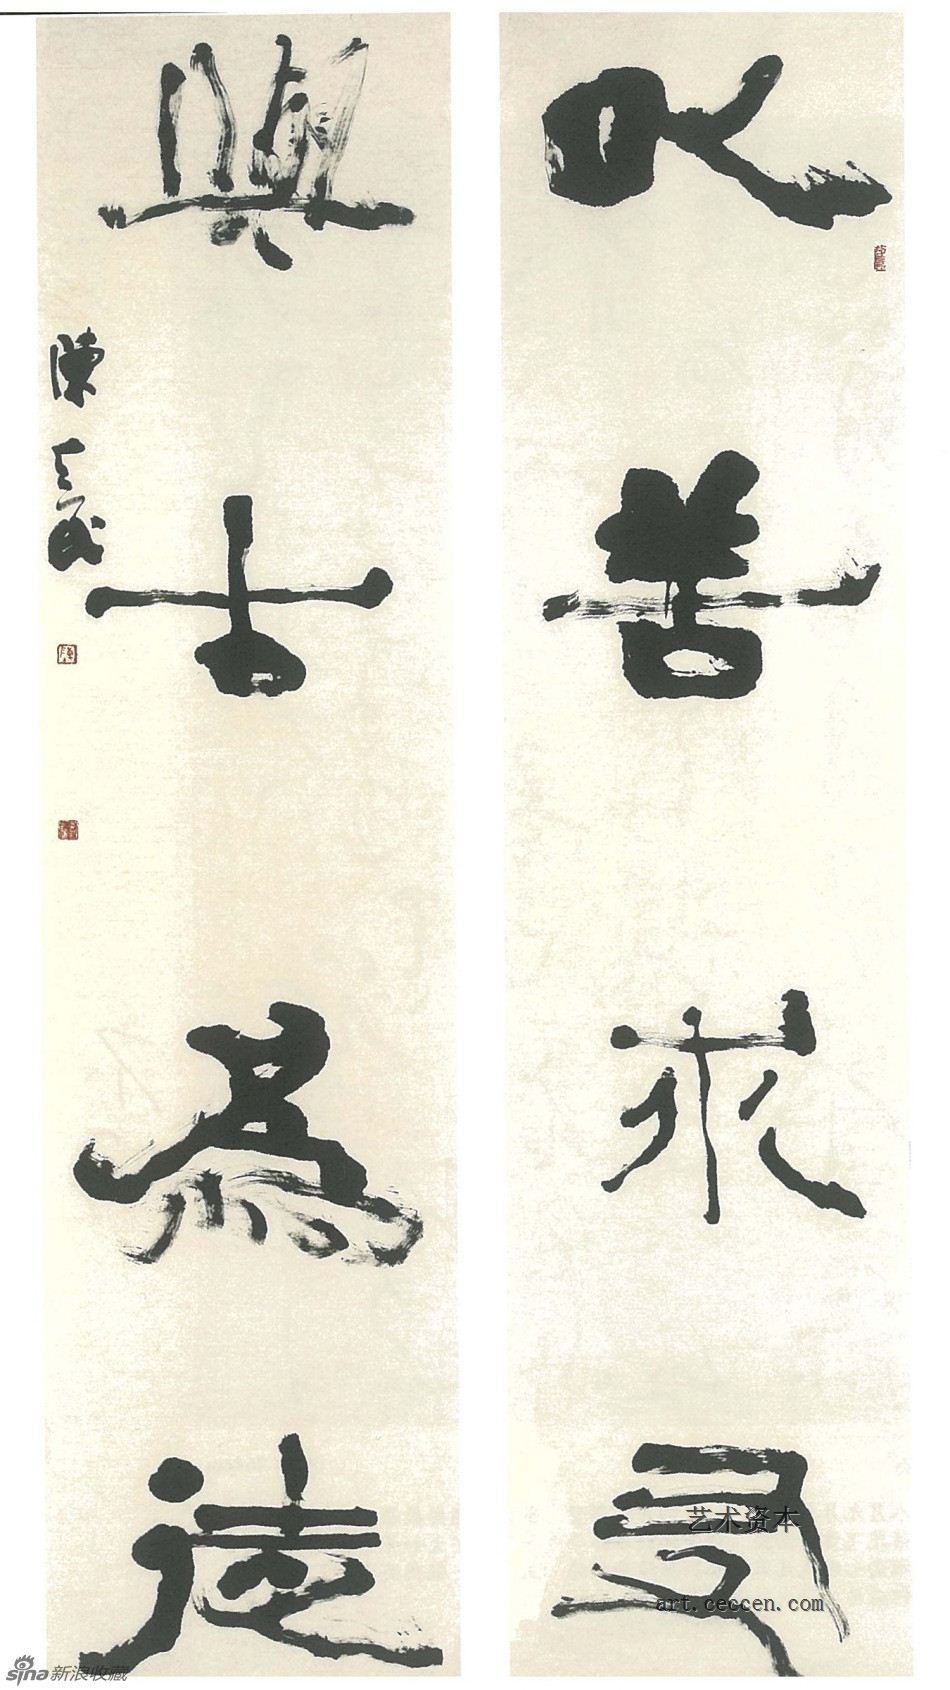 以善求友
與古為徒
陳
艺术资本
art.ceccen.com
sina新浪收藏